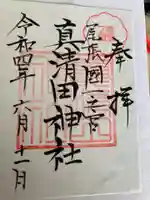 奉拝
尾張國一之宮
真清田神社
令和四年六月十一日